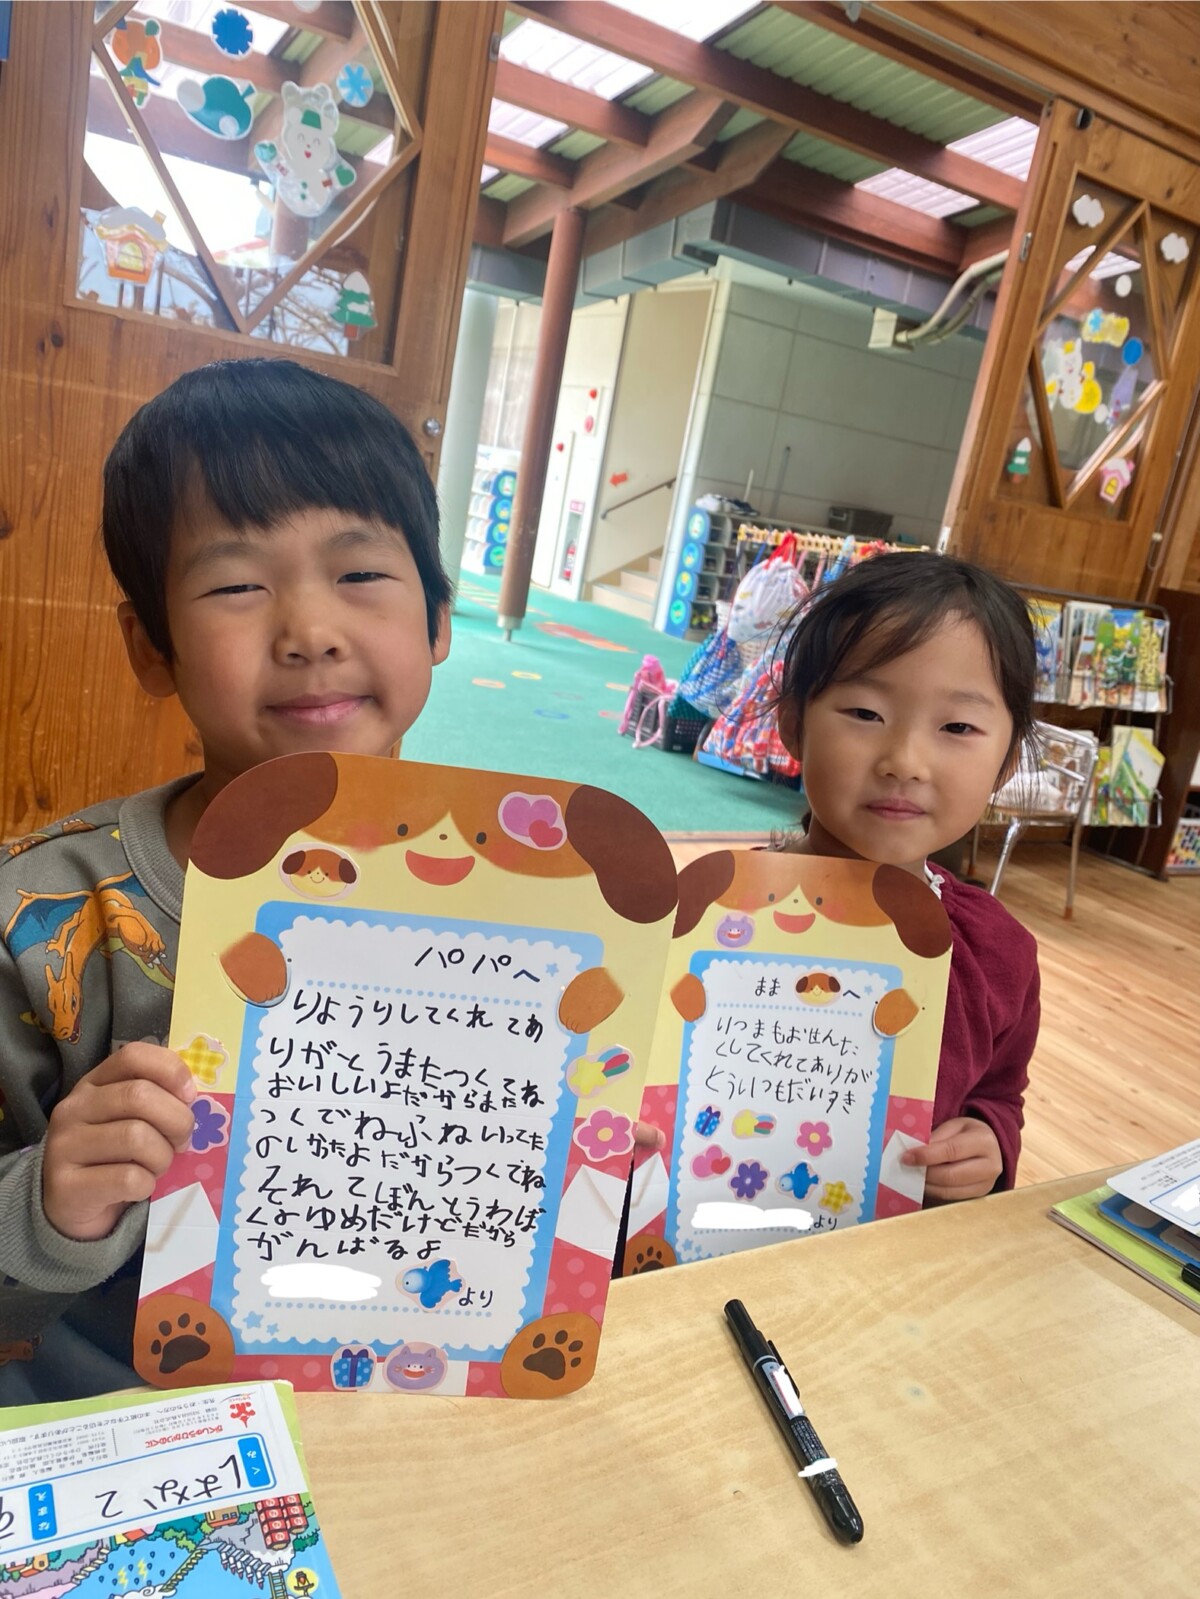 パパへ
りようりしてくれてあ
りがとうまたつくてね
おいしいよだからまたね
つくてねふねいってた
のしかたよだからつくてね
それてぼんとうわば
くはゆめだけどだから
がんばるよ
より
まま へ
いつまもおせんた
くしてくれてありが
とういつもだいすき
より
がくしゅうひかりのくに
くみ
なまえ